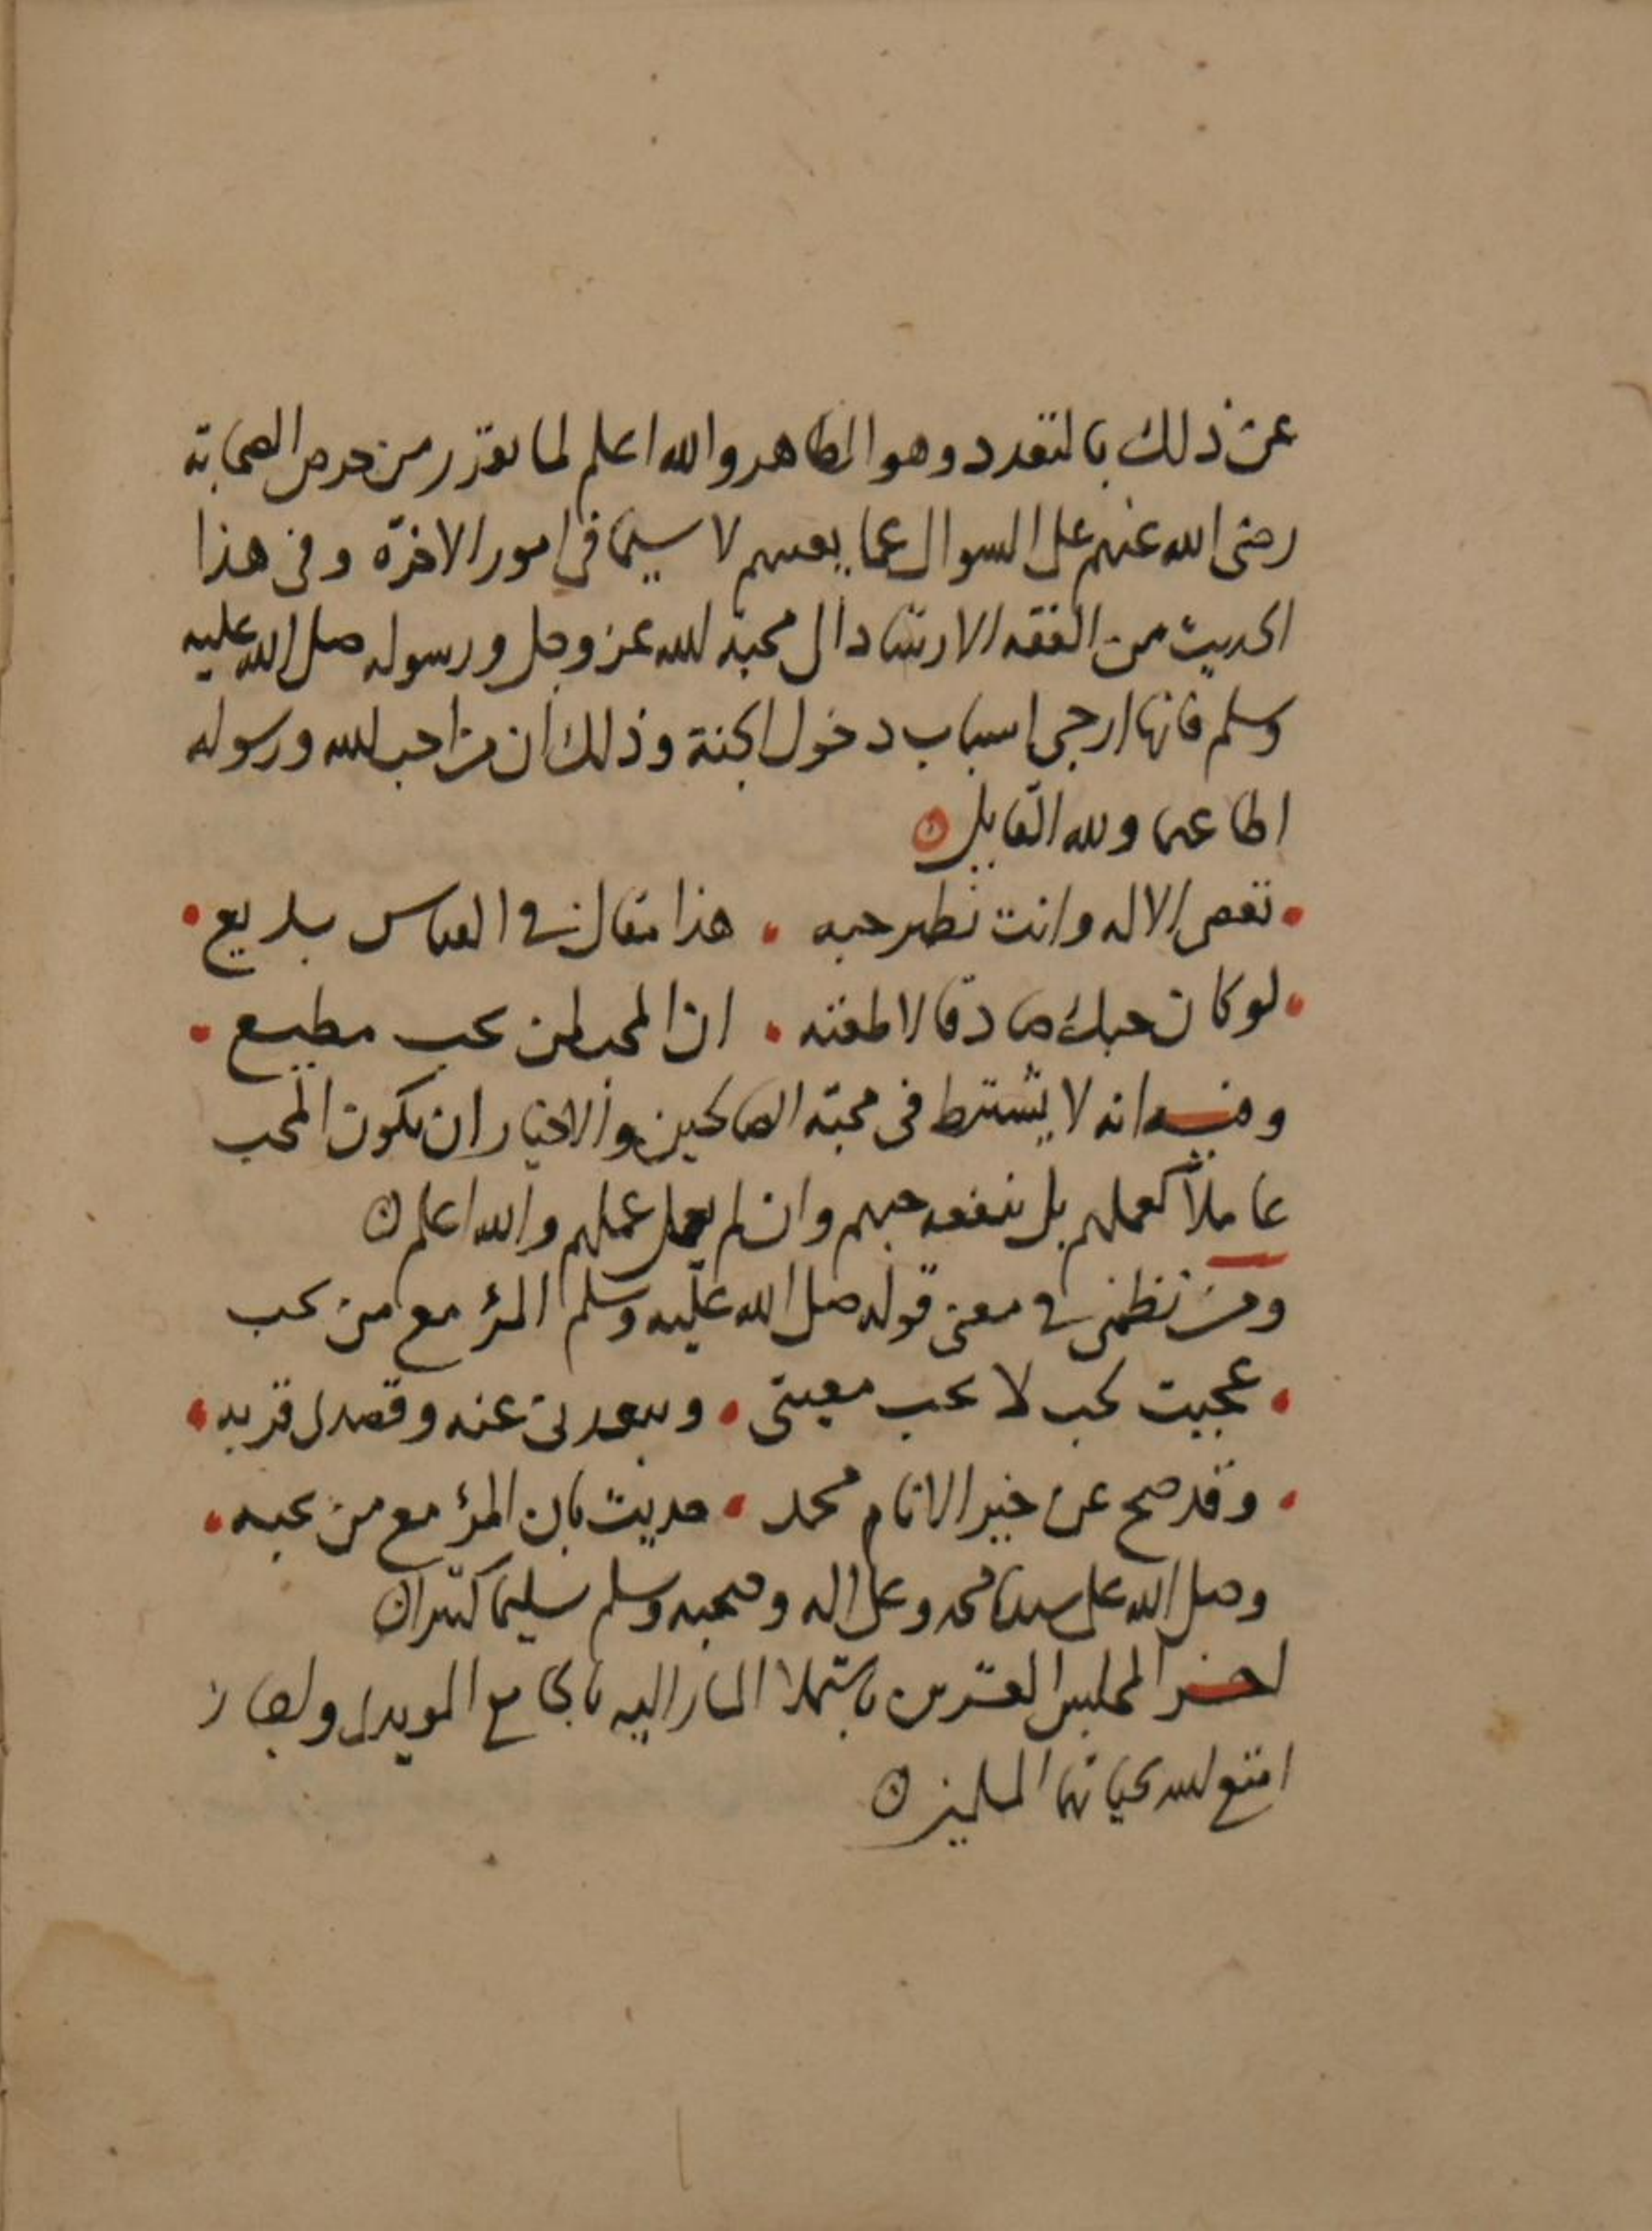 عن ذلك بالتعدد وهو الظاهر والله اعلم لما تقرر من حرص الصحابة
رضى الله عنهم على السوال عما يعمهم لا سيما فى امور الاخرة وفى هذا
الحديث من الفقه الارشاد الى محبة الله عز وجل ورسوله صلى الله عليه
وسلم فانها ارجى اسباب دخول الجنة وذلك ان من احب الله ورسوله
اطاعهما ولله القايل
تعصى الاله وانت تظهر حبه هذا مقال فى القياس بديع
لو كان حبك صادقا لاطعته ان المحب لمن يحب مطيع
وفيه انه لا يشترط فى محبة الصالحين والاخيار ان يكون المحب
عاملا كعملهم بل ينفعه حبهم وان لم يعمل عملهم والله اعلم
ومن نظمى فى معنى قوله صلى الله عليه وسلم المرؤ مع من يحب
عجبت لحب لا يحب معيتى ويبعدنى عنه وقصدى قربه
وقد صح عن خير الانام محمد حديث بان المرؤ مع من يحبه
وصلى الله على سيدنا محمد وعلى اله وصحبه وسلم تسليما كثيرا
اخر المجلس العشرين باستملا المشار اليه بالجامع المويدى
امتع الله بحياتهما المسلمين